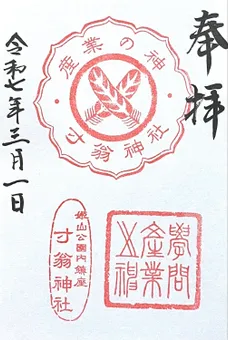 奉拝
産業の神
寸翁神社
姫山公園内鎮座
寸翁神社
學問
産業
之神
令和七年三月一日